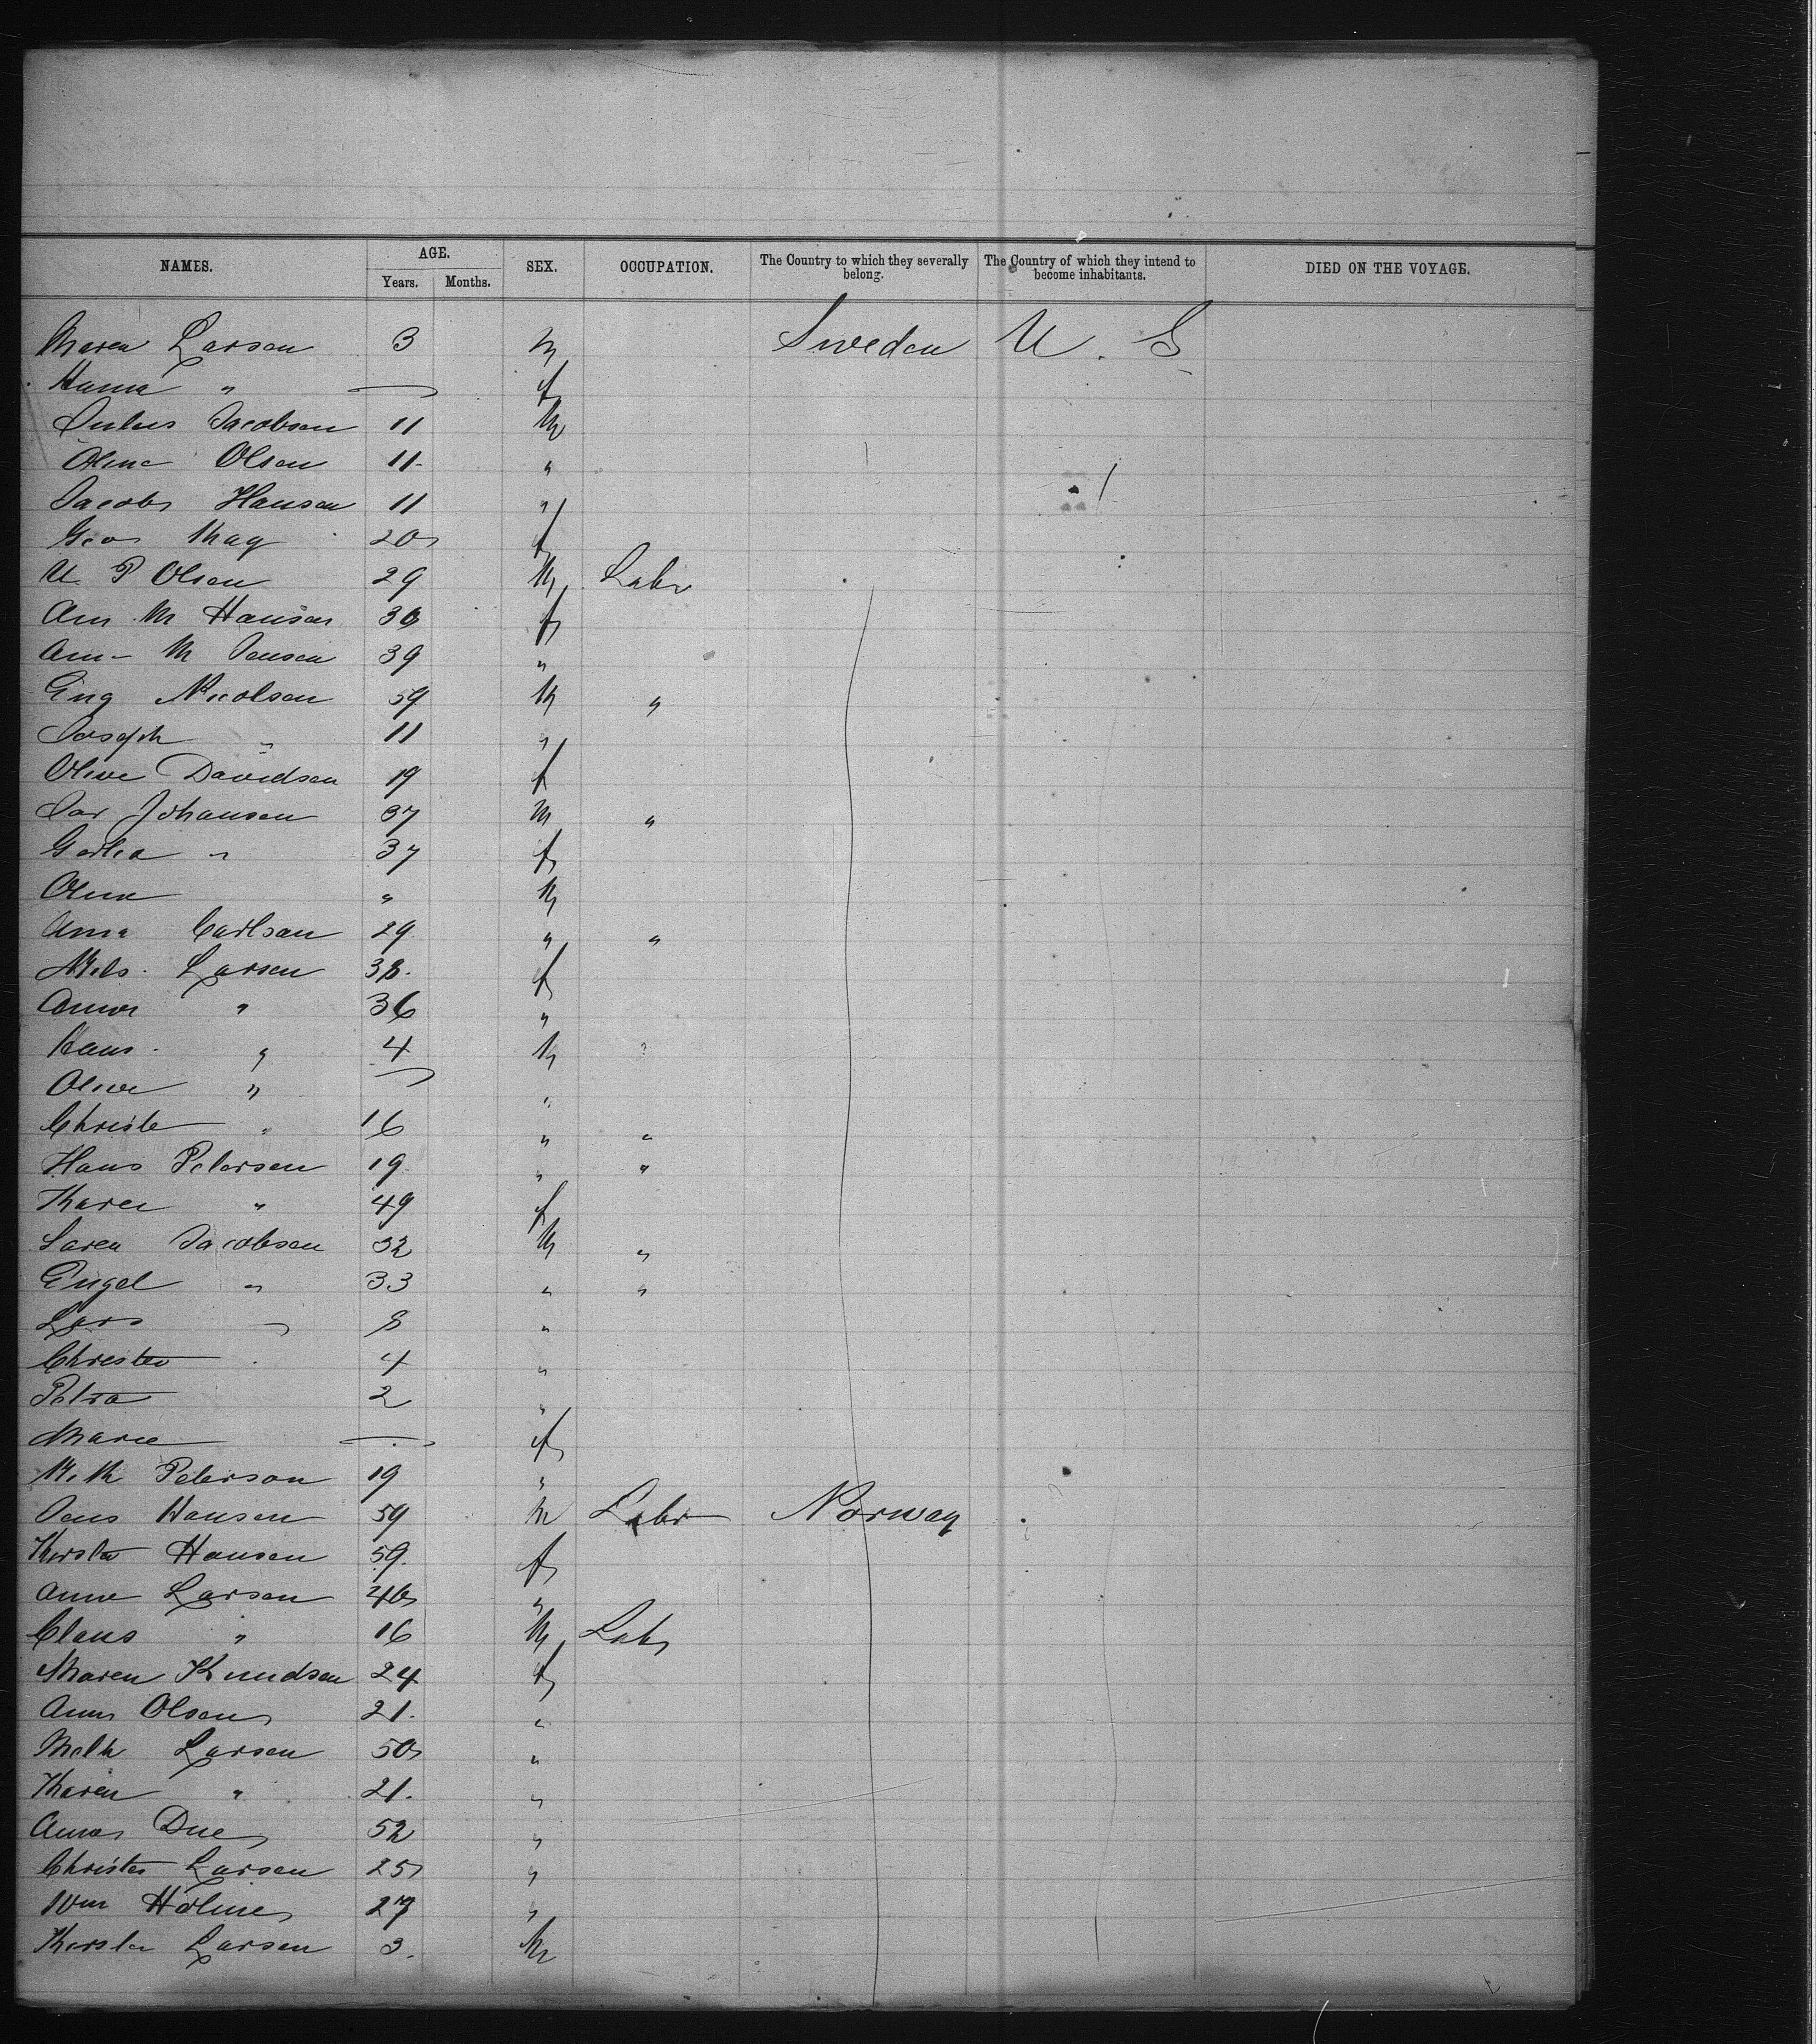 NAMES. AGE. SEX. OCCUPATION. The Country to which they severally belong. The Country of which they intend to become inhabitants. DIED ON THE VOYAGE.
Years. Months.
Maren Larsen 3 m Sweden U. S
Hanna " — f
Julius Jacobsen 11 M
Oline Olsen 11 "
Jacob Hansen 11 "
Geo May 20 f
U. P Olsen 29 M Labr
Ann M Hansen 36 f
Ann M Jensen 39 "
Eng Nicolsen 59 M "
Joseph " 11 "
Olive Davidsen 19 f
Jar Johansen 37 M "
Gerlia " 37 f
Olena " M
Anna Carlsen 29 " "
Niels Larsen 38 f
Anna " 36 "
Hans " 4 M
Oline " — "
Christe " 16 " "
Hans Petersen 19 " "
Karen " 49 f
Saren Jacobsen 32 M "
Engel " 33 " "
Lars " 8 "
Christen 4 "
Petra 2 "
Marie — f
M. M Peterson 19 "
Jens Hansen 59 M Labr Norway
Kirsten Hansen 59 f
Anne Larsen 40 "
Claus " 16 M Labr
Maren Knudsen 24 f
Anna Olsen 21 "
Meth Larsen 50 "
Karen " 21 "
Anna Due 52 "
Christen Larsen 25 "
Wm Holme 27 "
Kirsten Larsen 3 M